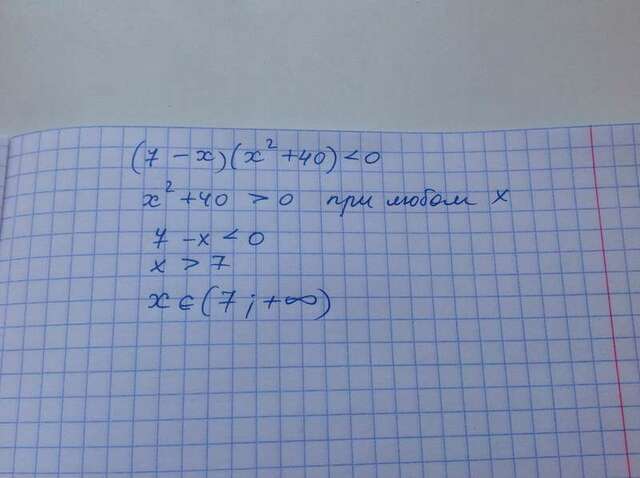 (7 - x)(x² + 40) < 0
x² + 40 > 0 при любом x
7 - x < 0
x > 7
x ∈ (7; +∞)